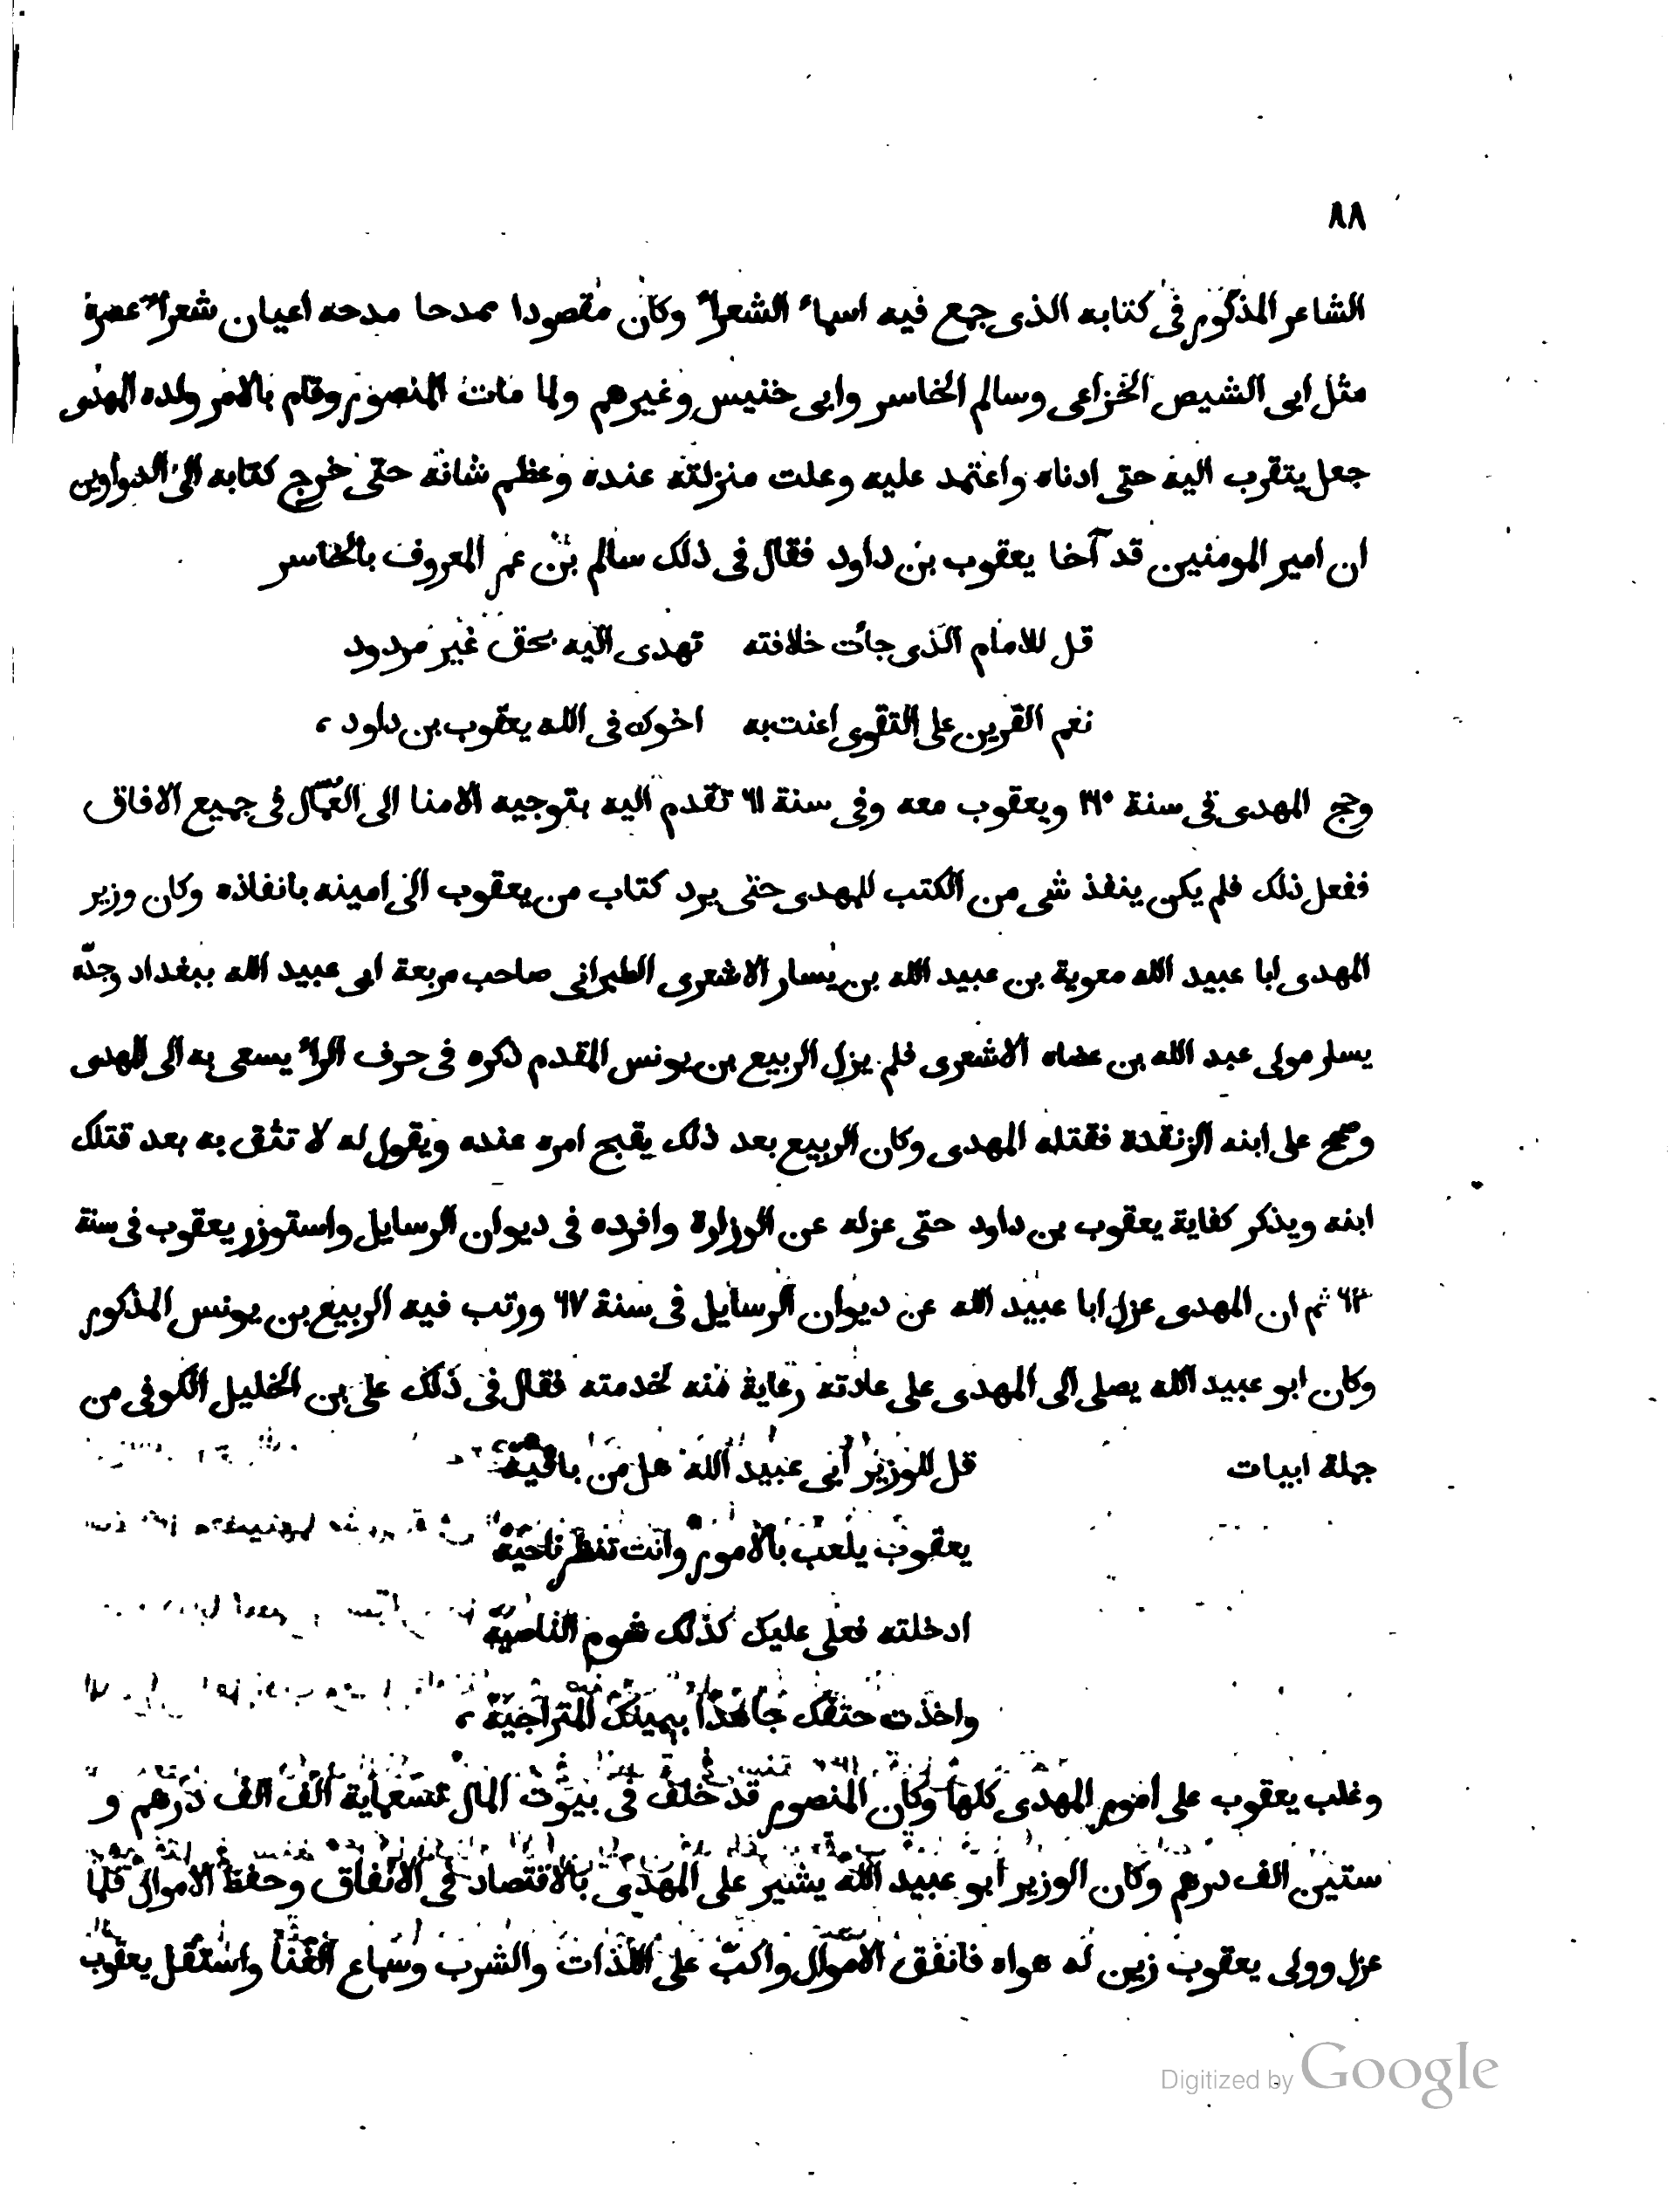 ٨٨
الشاعر المذكور فى كتابه الذى جمع فيه اسماء الشعراء وكان مقصودا ممدحا مدحه اعيان شعراء عصره
مثل ابى الشيص الخزاعى وسالم الخاسر وابى خنيس وغيرهم ولما مات المنصور وقام بالامر ولده المهدى
جعل يتقرب اليه حتى ادناه واعتمد عليه وعلت منزلته عنده وعظم شانه حتى خرج كتابه الى الدواوين
ان امير المومنين قد آخا يعقوب بن داود فقال فى ذلك سالم بن عمر المعروف بالخاسر
قل للامام الذى جأت خلافته تهدى اليه بحق غير مردود
نعم القرين على التقوى اعنت به اخوك فى الله يعقوب بن داود،
وحج المهدى فى سنة ويعقوب معه وفى سنة ٦١ تقدم اليه بتوجيه الامنا الى العمّال فى جميع الافاق
ففعل ذلك فلم يكن ينفذ شى من الكتب للمهدى حتى يرد كتاب من يعقوب الى امينه بانفاذه وكان وزير
المهدى ابا عبيد الله معوية بن عبيد الله بن يسار الاشعرى الطبرانى صاحب مربعة ابى عبيد الله ببغداد وجدّه
يسار مولى عبد الله بن عضاه الاشعرى فلم يزل الربيع بن يونس المقدم ذكره فى حرف الرأ يسعى به الى المهدى
وصحح على ابنه الزنقدة فقتله المهدى وكان الربيع بعد ذلك يقبح امره عنده ويقول له لا تثق به بعد قتلك
ابنه ويذكر كفاية يعقوب بن داود حتى عزله عن الوزارة وافرده فى ديوان الرسايل واستوزر يعقوب فى سنة
٦٣ ثم ان المهدى عزل ابا عبيد الله عن ديوان الرسايل فى سنة ٦٧ ورتب فيه الربيع بن يونس المذكور
وكان ابو عبيد الله يصلى الى المهدى على عادته رعاية منه لخدمته فقال فى ذلك على بن الخليل الكوفى من
جملة ابيات قل للوزير أبى عبيد الله هل من باقيه
يعقوب يلعب بالامور وانت تنظر ناحيه
ادخلته فعلى عليك كذلك شوم الناصيه
واخذت حتفك جاهدا بيمينك المتراخيه،
وغلب يعقوب على امور المهدى كلها وكان المنصور قد خلف فى بيوت المال تسعماية الف الف درهم و
ستين الف درهم وكان الوزير ابو عبيد الله يشير على المهدى بالاقتصاد فى الانفاق وحفظ الاموال فلما
عزل وولى يعقوب زين له هواه فانفق الاموال واكبّ على اللذات والشرب وسماع الغنا واستقل يعقوب
Digitized by Google